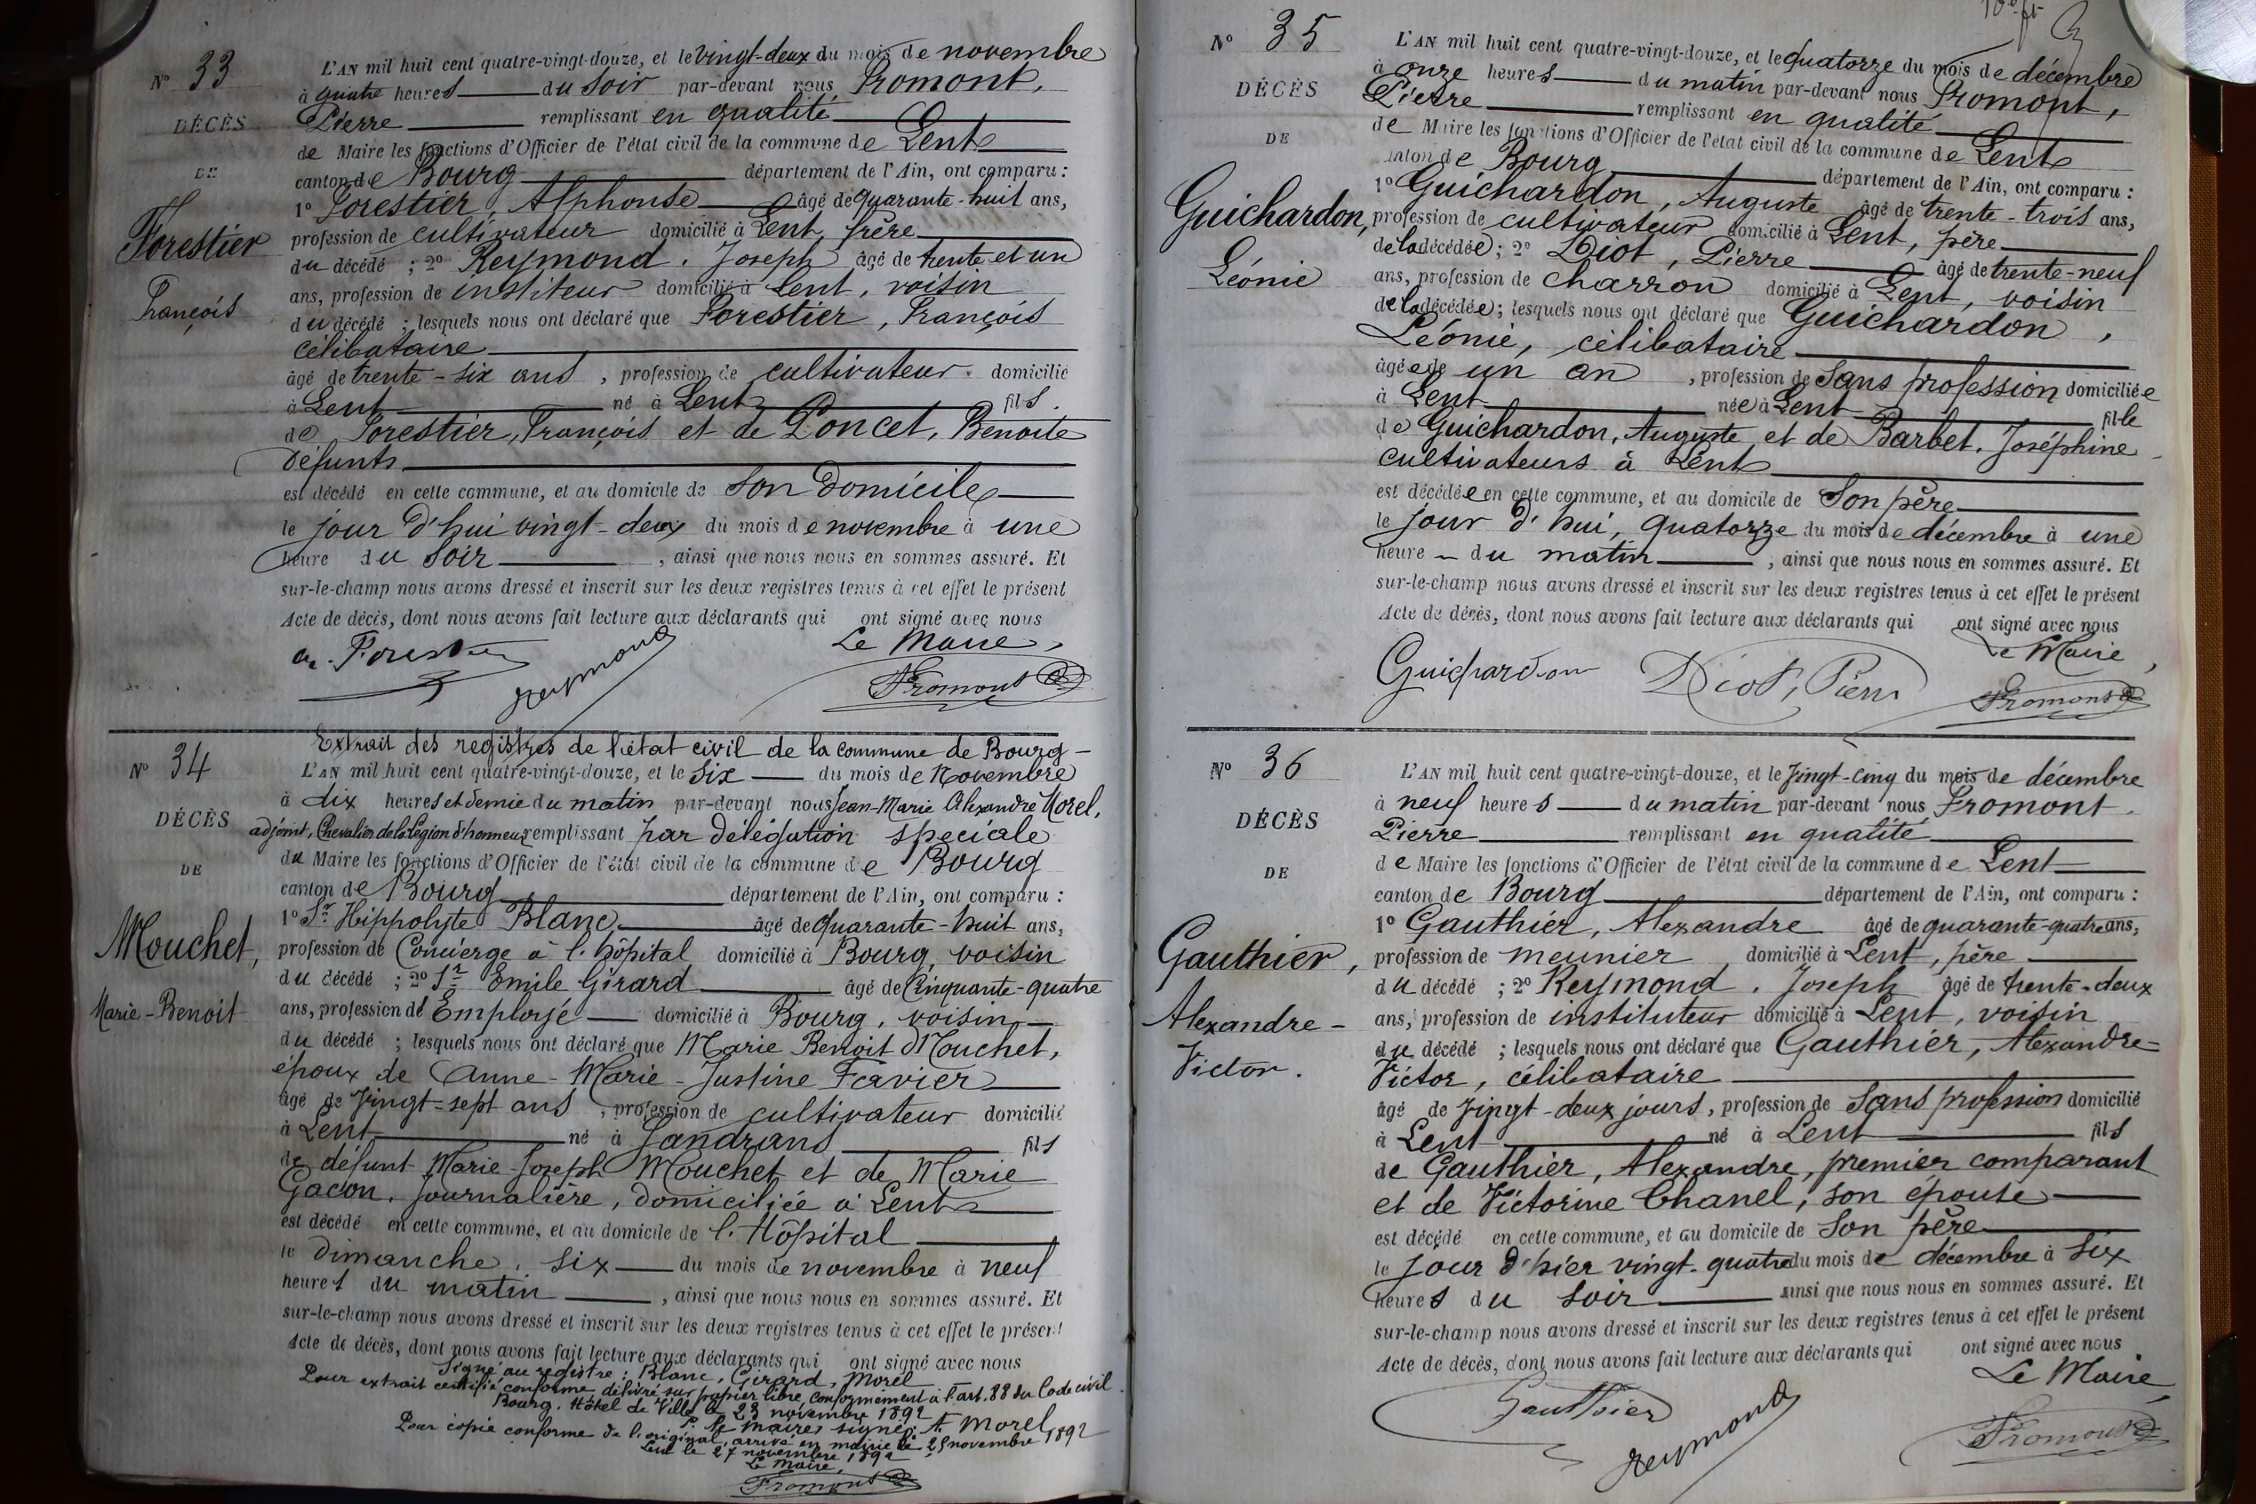 N° 33
DÉCÈS
DE
Forestier
François
L'AN mil huit cent quatre-vingt-douze, et le vingt-deux du mois de novembre
à quatre heures du soir par-devant nous Fromont,
Pierre remplissant en qualité
de Maire les fonctions d'Officier de l'état civil de la commune de Lent
canton de Bourg département de l'Ain, ont comparu :
1° Forestier, Alphonse âgé de quarante-huit ans,
profession de cultivateur domicilié à Lent, frère
du décédé ; 2° Reymond, Joseph âgé de trente et un
ans, profession de institeur domicilié à Lent, voisin
du décédé ; lesquels nous ont déclaré que Forestier, François
célibataire
âgé de trente-six ans, profession de cultivateur domicilié
à Lent né à Lent fils
de Forestier, François et de Poncet, Benoite
défunts
est décédé en cette commune, et au domicile de son domicile
le jour d'hui vingt-deux du mois de novembre à une
heure du soir, ainsi que nous nous en sommes assuré. Et
sur-le-champ nous avons dressé et inscrit sur les deux registres tenus à cet effet le présent
Acte de décès, dont nous avons fait lecture aux déclarants qui ont signé avec nous
Le Maire,
a. Forestier Reymond Fromont
N° 34
DÉCÈS
DE
Mouchet,
Marie-Benoit
Extrait des registres de l'état civil de la commune de Bourg-
L'AN mil huit cent quatre-vingt-douze, et le six du mois de Novembre
à dix heures et demie du matin par-devant nous Jean-Marie Alexandre Morel,
adjoint, Chevalier de la Légion d'honneur remplissant par délégation spéciale
du Maire les fonctions d'Officier de l'état civil de la commune de Bourg
canton de Bourg département de l'Ain, ont comparu :
1° Sr Hippolyte Blanc âgé de quarante-huit ans,
profession de Concierge à l'hôpital domicilié à Bourg, voisin
du décédé ; 2° Sr Emile Girard âgé de Cinquante-quatre
ans, profession de Employé domicilié à Bourg, voisin
du décédé ; lesquels nous ont déclaré que Marie Benoit Mouchet,
époux de Anne-Marie-Justine Favier
âgé de vingt-sept ans, profession de cultivateur domicilié
à Lent né à Sandrans fils
de défunt Marie-Joseph Mouchet et de Marie
Gacon, journalière, domiciliée à Lent
est décédé en cette commune, et au domicile de l'Hôpital
le dimanche, six du mois de novembre à neuf
heures du matin, ainsi que nous nous en sommes assuré. Et
sur-le-champ nous avons dressé et inscrit sur les deux registres tenus à cet effet le présent
Acte de décès, dont nous avons fait lecture aux déclarants qui ont signé avec nous
Signé au registre : Blanc, Girard, Morel
Pour extrait certifié conforme délivré sur papier libre, conformément à l'art. 88 du Code civil.
Bourg, Hôtel de Ville le 23 novembre 1892
P. le Maire, signé : A. Morel
Pour copie conforme de l'original, arrivé en mairie le 25 novembre 1892
Lent le 27 novembre 1892
Le Maire,
Fromont
N° 35
DÉCÈS
DE
Guichardon,
Léonie
L'AN mil huit cent quatre-vingt-douze, et le quatorze du mois de décembre
à onze heures du matin par-devant nous Fromont,
Pierre remplissant en qualité
de Maire les fonctions d'Officier de l'état civil de la commune de Lent
canton de Bourg département de l'Ain, ont comparu :
1° Guichardon, Auguste âgé de trente-trois ans,
profession de cultivateur domicilié à Lent, père
de la décédée ; 2° Diot, Pierre âgé de trente-neuf
ans, profession de charron domicilié à Lent, voisin
de la décédée ; lesquels nous ont déclaré que Guichardon,
Léonie, célibataire
âgée de un an, profession de Sans profession domiciliée
à Lent née à Lent fille
de Guichardon, Auguste et de Barbet, Joséphine
cultivateurs à Lent
est décédée en cette commune, et au domicile de Son père
le jour d'hui, quatorze du mois de décembre à une
heure du matin, ainsi que nous nous en sommes assuré. Et
sur-le-champ nous avons dressé et inscrit sur les deux registres tenus à cet effet le présent
Acte de décès, dont nous avons fait lecture aux déclarants qui ont signé avec nous
Le Maire,
Guichardon Diot, Pierre Fromont
N° 36
DÉCÈS
DE
Gauthier,
Alexandre-
Victor.
L'AN mil huit cent quatre-vingt-douze, et le vingt-cinq du mois de décembre
à neuf heures du matin par-devant nous Fromont,
Pierre remplissant en qualité
de Maire les fonctions d'Officier de l'état civil de la commune de Lent
canton de Bourg département de l'Ain, ont comparu :
1° Gauthier, Alexandre âgé de quarante-quatre ans,
profession de meunier, domicilié à Lent, père
du décédé ; 2° Reymond, Joseph âgé de trente-deux
ans, profession de instituteur domicilié à Lent, voisin
du décédé ; lesquels nous ont déclaré que Gauthier, Alexandre-
Victor, célibataire
âgé de vingt-deux jours, profession de Sans profession domicilié
à Lent né à Lent fils
de Gauthier, Alexandre, premier comparant
et de Victorine Chanel, son épouse
est décédé en cette commune, et au domicile de Son père
le jour d'hier vingt-quatre du mois de décembre à six
heures du soir ainsi que nous nous en sommes assuré. Et
sur-le-champ nous avons dressé et inscrit sur les deux registres tenus à cet effet le présent
Acte de décès, dont nous avons fait lecture aux déclarants qui ont signé avec nous
Le Maire,
Gauthier Reymond Fromont